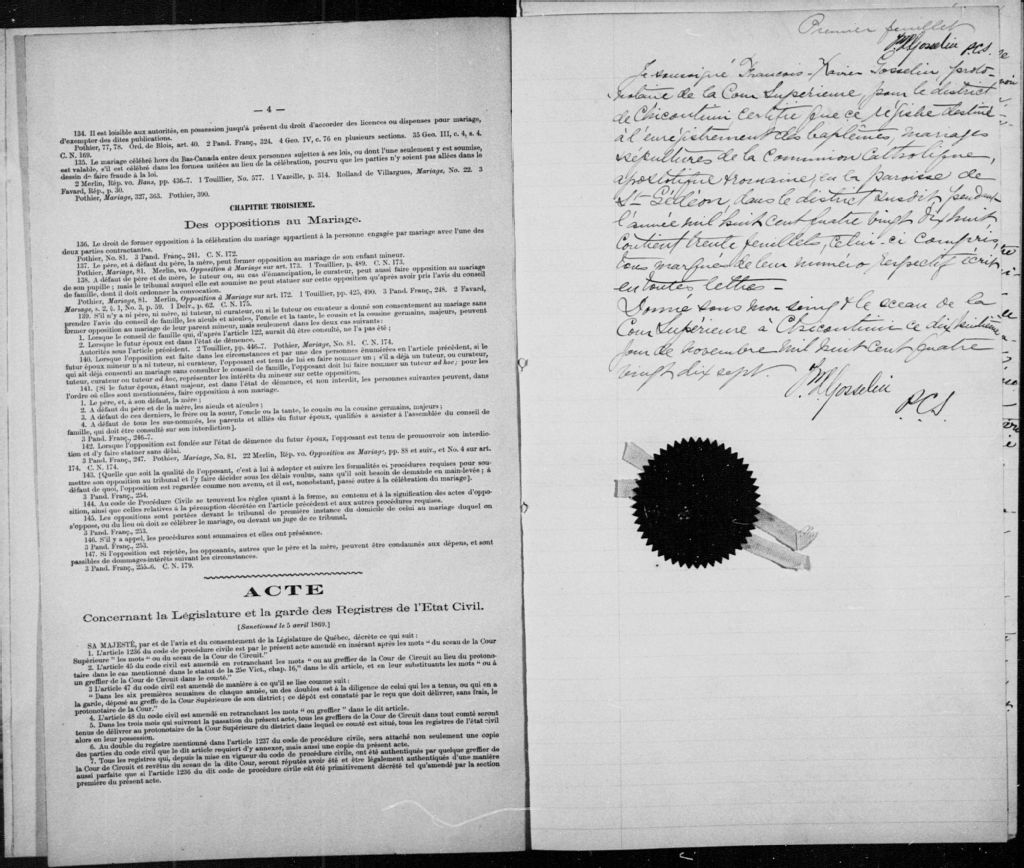 — 4 —
134. Il est loisible aux autorités, en possession jusqu'à présent du droit d'accorder des licences ou dispenses pour mariage,
d'exempter des dites publications.
Pothier, 77, 78. Ord. de Blois, art. 40. 2 Pand. Franç., 324. 4 Geo. IV, c. 76 en plusieurs sections. 35 Geo. III, c. 4, s. 4.
C. N. 169.
135. Le mariage célébré hors du Bas-Canada entre deux personnes sujettes à ses lois, ou dont l'une seulement y est soumise,
est valable, s'il est célébré dans les formes usitées au lieu de la célébration, pourvu que les parties n'y soient pas allées dans le
dessein de faire fraude à la loi.
2 Merlin, Rép. vo. Bans, pp. 436-7. 1 Touillier, No. 577. 1 Vazeille, p. 314. Rolland de Villargues, Mariage, No. 22. 3
Favard, Rép., p. 30.
Pothier, Mariage, 327, 363. Pothier, 390.
CHAPITRE TROISIEME.
Des oppositions au Mariage.
136. Le droit de former opposition à la célébration du mariage appartient à la personne engagée par mariage avec l'une des
deux parties contractantes.
Pothier, No. 81. 3 Pand. Franç., 241. C. N. 172.
137. Le père, et à défaut du père, la mère, peut former opposition au mariage de son enfant mineur.
Pothier, Mariage, 81. Merlin, vo. Opposition à Mariage sur art. 173. 1 Touillier, p. 489. C. N. 173.
138. A défaut de père et de mère, le tuteur ou, au cas d'émancipation, le curateur, peut aussi faire opposition au mariage
de son pupille; mais le tribunal auquel elle est soumise ne peut statuer sur cette opposition qu'après avoir pris l'avis du conseil
de famille, dont il doit ordonner la convocation.
Pothier, Mariage, 81. Merlin, Opposition à Mariage sur art. 172. 1 Touillier, pp. 425, 490. 3 Pand. Franç., 248. 2 Favard,
Mariage, s. 2, § 1, No. 3, p. 59. 1 Delv., p. 62. C. N. 175.
139. S'il n'y a ni père, ni mère, ni tuteur, ni curateur, ou si le tuteur ou curateur a donné son consentement au mariage sans
prendre l'avis du conseil de famille, les aïeuls et aïeules, l'oncle et la tante, le cousin et la cousine germains, majeurs, peuvent
former opposition au mariage de leur parent mineur, mais seulement dans les deux cas suivants:
1. Lorsque le conseil de famille qui, d'après l'article 122, aurait dû être consulté, ne l'a pas été;
2. Lorsque le futur époux est dans l'état de démence.
Autorités sous l'article précédent. 2 Touillier, pp. 446-7. Pothier, Mariage, No. 81. C. N. 174.
140. Lorsque l'opposition est faite dans les circonstances et par une des personnes énumérées en l'article précédent, si le
futur époux mineur n'a ni tuteur, ni curateur, l'opposant est tenu de lui en faire nommer un; s'il a déjà un tuteur, ou curateur,
qui ait déjà consenti au mariage sans consulter le conseil de famille, l'opposant doit lui faire nommer un tuteur ad hoc; pour les
tuteur, curateur ou tuteur ad hoc, représenter les intérêts du mineur sur cette opposition.
141. [Si le futur époux, étant majeur, est dans l'état de démence, et non interdit, les personnes suivantes peuvent, dans
l'ordre où elles sont mentionnées, faire opposition à son mariage.
1. Le père, et, à son défaut, la mère;
2. A défaut du père et de la mère, les aïeuls et aïeules;
3. A défaut de ces derniers, le frère ou la sœur, l'oncle ou la tante, le cousin ou la cousine germains, majeurs;
4. A défaut de tous les sus-nommés, les parents et alliés du futur époux, qualifiés à assister à l'assemblée du conseil de
famille, qui doit être consulté sur son interdiction].
3 Pand. Franç., 246-7.
142. Lorsque l'opposition est fondée sur l'état de démence du futur époux, l'opposant est tenu de promouvoir son interdic-
tion et d'y faire statuer sans délai.
3 Pand. Franç., 247. Pothier, Mariage, No. 81. 22 Merlin, Rép. vo. Opposition au Mariage, pp. 88 et suiv., et No. 4 sur art.
174. C. N. 174.
143. [Quelque que soit la qualité de l'opposant, c'est à lui à adopter et suivre les formalités et procédures requises pour sou-
mettre son opposition au tribunal et l'y faire décider sous les délais voulus, sans qu'il soit besoin de demande en main-levée; à
défaut de quoi, l'opposition est regardée comme non avenu, et il est, nonobstant, passé outre à la célébration du mariage].
3 Pand. Franç., 254.
144. Au code de Procédure Civile se trouvent les règles quant à la forme, au contenu et à la signification des actes d'oppo-
sition, ainsi que celles relatives à la péremption décrétée en l'article précédent et aux autres procédures requises.
145. Les oppositions sont portées devant le tribunal de première instance du domicile de celui au mariage duquel on
s'oppose, ou du lieu où doit se célébrer le mariage, ou devant un juge de ce tribunal.
3 Pand. Franç., 253.
146. S'il y a appel, les procédures sont sommaires et elles ont préséance.
3 Pand. Franç., 253.
147. Si l'opposition est rejetée, les opposants, autres que le père et la mère, peuvent être condamnés aux dépens, et sont
passibles de dommages-intérêts suivant les circonstances.
3 Pand. Franç., 255-6. C. N. 179.
ACTE
Concernant la Législature et la garde des Registres de l'Etat Civil.
[Sanctionné le 5 avril 1869.]
SA MAJESTÉ, par et de l'avis et du consentement de la Législature de Québec, décrète ce qui suit:
1. L'article 1236 du code de procédure civile est par le présent acte amendé en insérant après les mots "du sceau de la Cour
Supérieure" les mots "ou du sceau de la Cour de Circuit."
2. L'article 45 du code civil est amendé en retranchant les mots "ou au greffier de la Cour de Circuit au lieu du protono-
taire dans le cas mentionné dans le statut de la 25e Vict., chap. 16," dans le dit article, et en leur substituants les mots "ou à
un greffier de la Cour de Circuit dans le comté."
3 L'article 47 du code civil est amendé de manière à ce qu'il se lise comme suit:
"Dans les six premières semaines de chaque année, un des doubles est à la diligence de celui qui les a tenus, ou qui en a
la garde, déposé au greffe de la Cour Supérieure de son district; ce dépôt est constaté par le reçu que doit délivrer, sans frais, le
protonotaire de la Cour."
4. L'article 48 du code civil est amendé en retranchant les mots "ou greffier" dans le dit article.
5. Dans les trois mois qui suivront la passation du présent acte, tous les greffiers de la Cour de Circuit dans tout comté seront
tenus de délivrer au protonotaire de la Cour Supérieure du district dans lequel ce comté est situé, tous les registres de l'état civil
alors en leur possession.
6. Au double du registre mentionné dans l'article 1237 du code de procédure civile, sera attaché non seulement une copie
des parties du code civil que le dit article requiert d'y annexer, mais aussi une copie du présent acte.
7. Tous les registres qui, depuis la mise en vigueur du code de procédure civile, ont été authentiqués par quelque greffier de
la Cour de Circuit et revêtus du sceau de la dite Cour, seront réputés avoir été et être légalement authentiqués d'une manière
aussi parfaite que si l'article 1236 du dit code de procédure civile eût été primitivement décrété tel qu'amendé par la section
première du présent acte.
Premier feuillet
Gosselin P.C.S.
Je soussigné François-Xavier Gosselin, proto-
notaire de la Cour Supérieure, pour le district
de Chicoutimi certifie que ce régistre destiné
à l'enrégistrement des baptêmes, mariages
sépultures de la Communion Catholique,
apostolique & romaine, en la paroisse de
St-Gédéon, dans le district susdit pendant
l'année mil huit cent quatre vingt dix huit
contient trente feuillets, celui-ci compris
tous marqués de leur numéro respectif écrit
en toutes lettres -
Donné sous mon seing & le sceau de la
Cour Supérieure à Chicoutimi ce dix huitième
jour de novembre mil huit cent quatre
vingt dix sept.
Gosselin
P.C.S